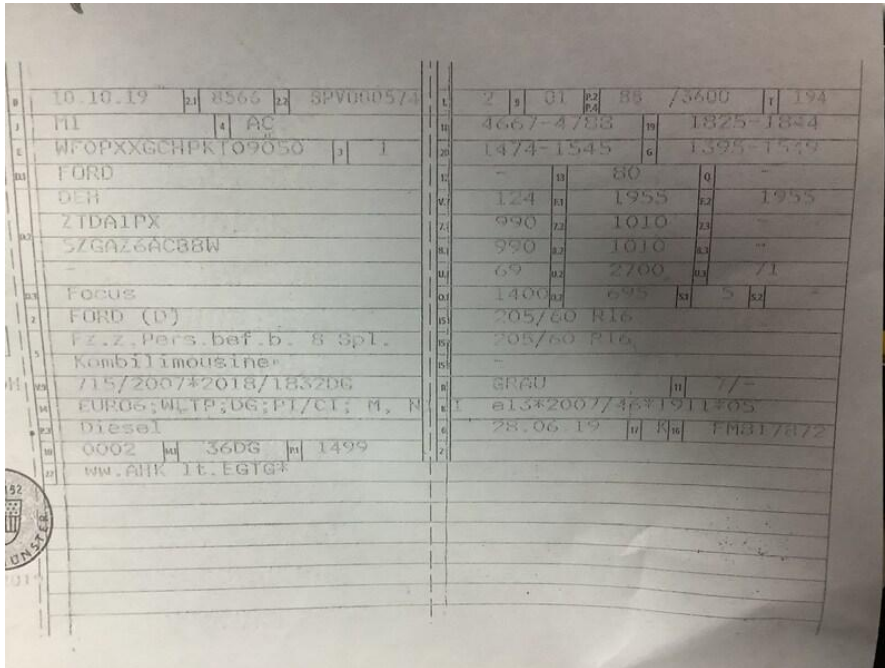 B 10.10.19 2.1 8566 2.2 8PV000574
J M1 4 AC
E WF0PXXGCHPKT09050 3 1
D.1 FORD
DEH
D.2 ZTDA1PX
5ZGAZ6ACB8W
-
D.3 Focus
2 FORD (D)
5 Fz.z.Pers.bef.b. 8 Spl.
Kombilimousine
V.9 715/2007*2018/1832DG
14 EURO6;WLTP;DG;PI/CI; M, N I
P.3 Diesel
10 0002 14.1 36DG P.1 1499
22 ww.AHK lt.EGTG*
L 2 9 01 P.2 P.4 88 /3600 T 194
18 4667-4788 19 1825-1844
20 1474-1545 G 1395-1549
12 - 13 80 Q -
V.7 124 F.1 1955 F.2 1955
7.1 990 7.2 1010 7.3 -
8.1 990 8.2 1010 8.3 -
U.1 69 U.2 2700 U.3 71
O.1 1400 O.2 695 S.1 5 S.2 -
15.1 205/60 R16
15.2 205/60 R16
15.3 -
R GRAU 11 7/-
K e13*2007/46*1911*05
6 28.06.19 17 K 16 FM817872
21